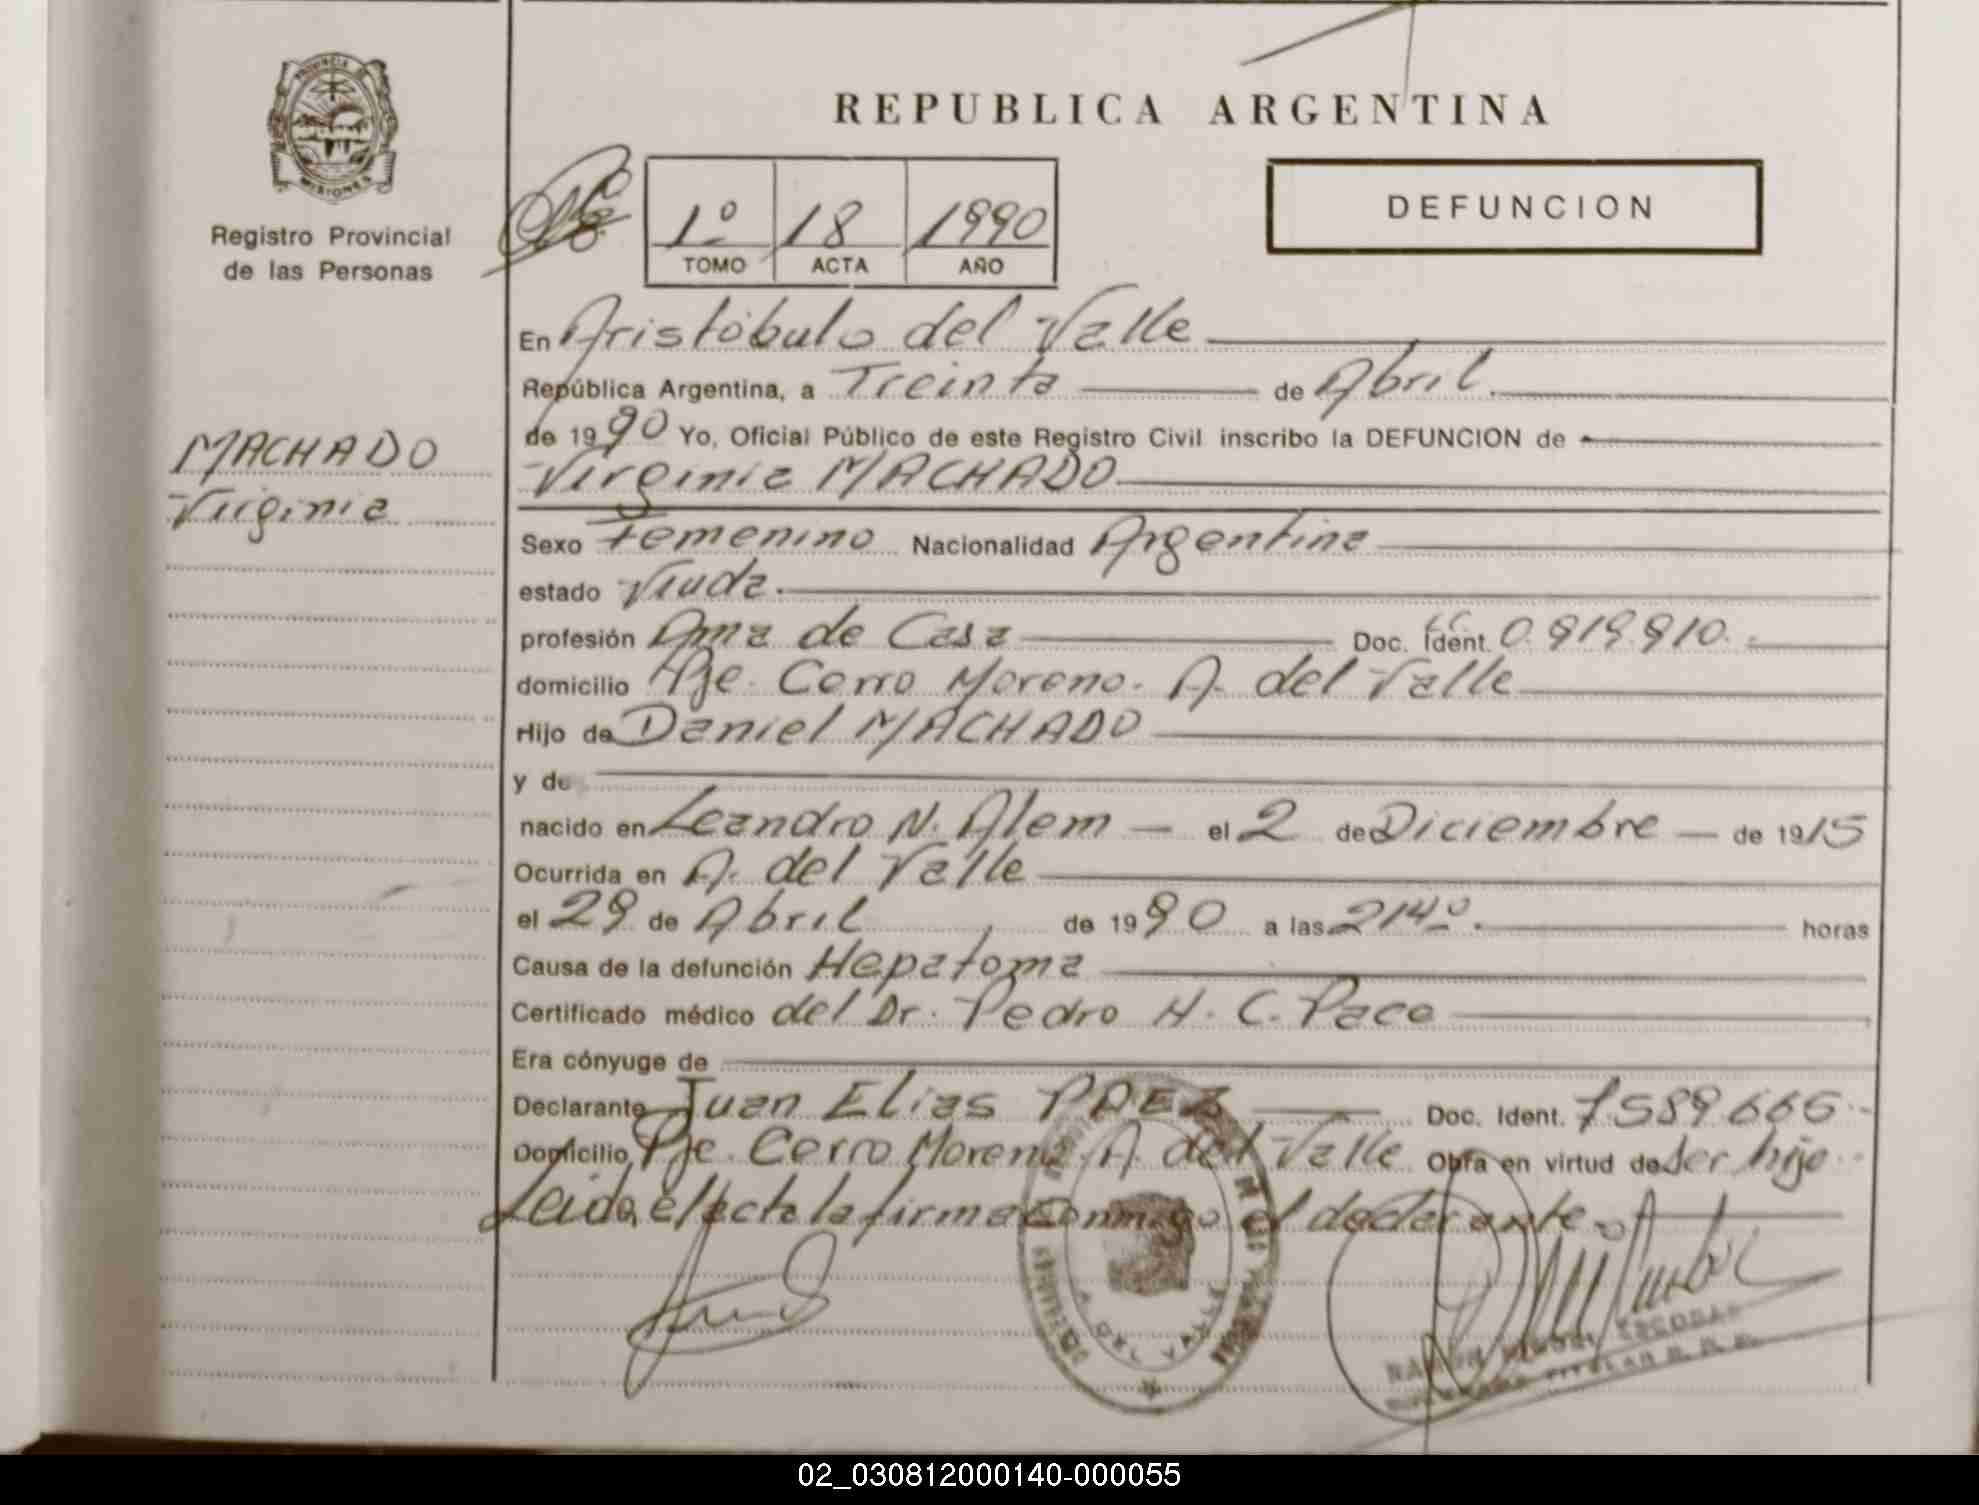 PROVINCIA DE
MISIONES
Registro Provincial
de las Personas
MACHADO
Virginia
REPUBLICA ARGENTINA
1º 18 1990
TOMO ACTA AÑO
DEFUNCION
En Aristóbulo del Valle
República Argentina, a Treinta de Abril.
de 1990 Yo, Oficial Público de este Registro Civil inscribo la DEFUNCION de
Virginia MACHADO
Sexo Femenino Nacionalidad Argentina
estado Viuda.
profesión Ama de Casa Doc. Ident. 0.919.910.
domicilio Pje. Cerro Moreno. A. del Valle
Hijo de Daniel MACHADO
y de
nacido en Leandro N. Alem el 2 de Diciembre de 1915
Ocurrida en A. del Valle
el 29 de Abril de 1990 a las 21 40. horas
Causa de la defunción Hepatoma
Certificado médico del Dr. Pedro H. C. Pace
Era cónyuge de
Declarante Juan Elias PAEZ Doc. Ident. 7.589.665
Domicilio Pje. Cerro Moreno A. del Valle Obra en virtud de Ser hijo
Leida el acta la firma conmigo el declarante.
A. DEL VALLE
ESCOBAR
TITULAR
02_030812000140-000055